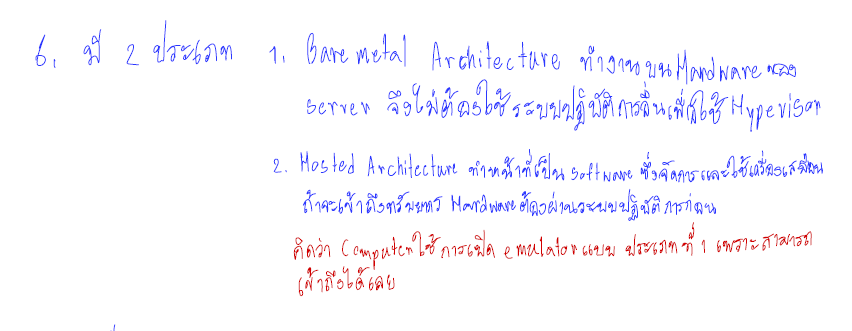 6. มี 2 ประเภท 1. Bare metal Architecture ทำงานบน Hardware ของ
server จึงไม่ต้องใช้ระบบปฏิบัติการอื่นเพื่อใช้ Hypevisor
2. Hosted Architecture ทำหน้าที่เป็น software ซึ่งจัดการและใช้เครื่องเสมือน
ถ้าจะเข้าถึงทรัพยากร Hardware ต้องผ่านระบบปฏิบัติการก่อน
คิดว่า Computer ใช้การเปิด emulator แบบ ประเภทที่ 1 เพราะสามารถ
เข้าถึงได้เลย